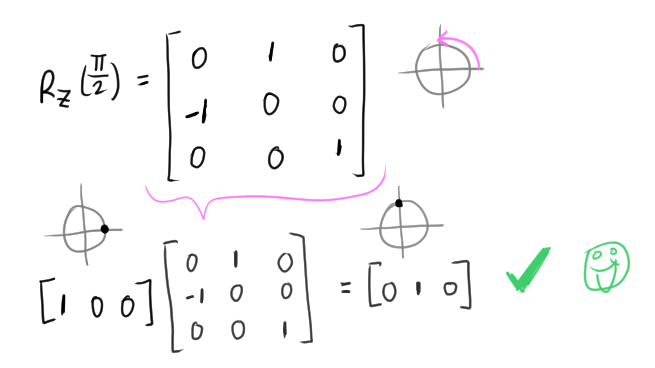 R_Z(π/2) = [0 1 0
-1 0 0
0 0 1]
[1 0 0] [0 1 0
-1 0 0
0 0 1] = [0 1 0] ✓